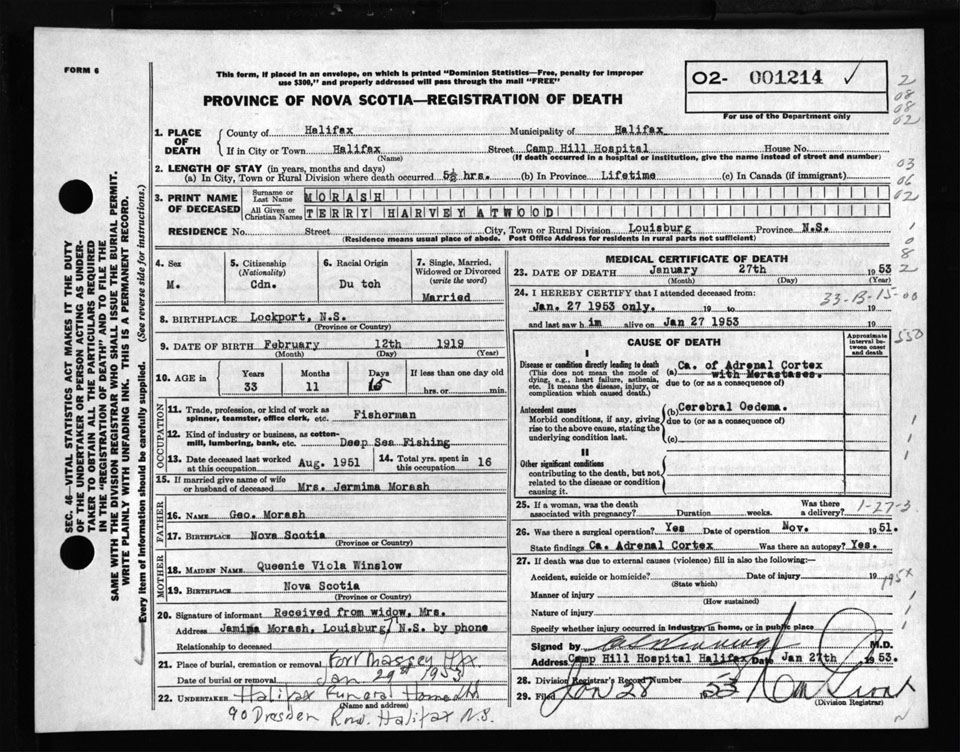 FORM 6
This form, if placed in an envelope, on which is printed "Dominion Statistics—Free, penalty for improper
use $300," and properly addressed will pass through the mail "FREE"
PROVINCE OF NOVA SCOTIA—REGISTRATION OF DEATH
O2- 001214 ✓
For use of the Department only
2
08
08
02
03
06
02
1
0
8
2
SEC. 46—VITAL STATISTICS ACT MAKES IT THE DUTY
OF THE UNDERTAKER OR PERSON ACTING AS UNDER-
TAKER TO OBTAIN ALL THE PARTICULARS REQUIRED
IN THE "REGISTRATION OF DEATH" AND TO FILE THE
SAME WITH THE DIVISION REGISTRAR WHO SHALL ISSUE THE BURIAL PERMIT.
WRITE PLAINLY WITH UNFADING INK. THIS IS A PERMANENT RECORD.
Every item of information should be carefully supplied. (See reverse side for instructions.)
1. PLACE OF DEATH
County of Halifax Municipality of Halifax
If in City or Town Halifax Street Camp Hill Hospital House No.
(Name) (If death occurred in a hospital or institution, give the name instead of street and number)
2. LENGTH OF STAY (in years, months and days)
(a) In City, Town or Rural Division where death occurred 5½ hrs. (b) In Province Lifetime (c) In Canada (if immigrant)
3. PRINT NAME OF DECEASED
Surname or Last Name MORASH
All Given or Christian Names TERRY HARVEY ATWOOD
RESIDENCE No. Street City, Town or Rural Division Louisburg Province N.S.
(Residence means usual place of abode. Post Office Address for residents in rural parts not sufficient)
4. Sex
M.
5. Citizenship (Nationality)
Cdn.
6. Racial Origin
Du tch
7. Single, Married, Widowed or Divorced (write the word)
Married
8. BIRTHPLACE Lockport, N.S.
(Province or Country)
9. DATE OF BIRTH February 12th 1919
(Month) (Day) (Year)
10. AGE in Years Months Days If less than one day old
33 11 15 hrs. or min.
OCCUPATION
11. Trade, profession, or kind of work as spinner, teamster, office clerk, etc. Fisherman
12. Kind of industry or business, as cotton-mill, lumbering, bank, etc. Deep Sea Fishing
13. Date deceased last worked at this occupation Aug. 1951
14. Total yrs. spent in this occupation 16
15. If married give name of wife or husband of deceased Mrs. Jermima Morash
FATHER
16. NAME Geo. Morash
17. BIRTHPLACE Nova Scotia
(Province or Country)
MOTHER
18. MAIDEN NAME Queenie Viola Winslow
19. BIRTHPLACE Nova Scotia
(Province or Country)
20. Signature of informant Received from widow, Mrs.
Address Jamima Morash, Louisburg, N.S. by phone
Relationship to deceased
21. Place of burial, cremation or removal Fort Massey Hfx.
Date of burial or removal Jan 29th 1953
22. UNDERTAKER Halifax Funeral Home
(Name and address)
90 Dresden Row. Halifax N.S.
MEDICAL CERTIFICATE OF DEATH
23. DATE OF DEATH January 27th 1953
(Month) (Day) (Year)
24. I HEREBY CERTIFY that I attended deceased from:
33-B-15-00
Jan. 27 1953 only. 19 to 19
and last saw h im alive on Jan 27 1953 19
CAUSE OF DEATH
Approximate interval between onset and death
550
I
Disease or condition directly leading to death
(This does not mean the mode of dying, e.g., heart failure, asthenia, etc. It means the disease, injury, or complication which caused death.)
(a) Ca. of Adrenal Cortex
with Merastases.
due to (or as a consequence of)
Antecedent causes
Morbid conditions, if any, giving rise to the above cause, stating the underlying condition last.
(b) Cerebral Oedema.
due to (or as a consequence of)
(c)
II
Other significant conditions
contributing to the death, but not related to the disease or condition causing it.
25. If a woman, was the death associated with pregnancy? Duration weeks. Was there a delivery?
1-27-3
26. Was there a surgical operation? Yes Date of operation Nov. 1951.
State findings Ca. Adrenal Cortex Was there an autopsy? Yes.
27. If death was due to external causes (violence) fill in also the following:—
Accident, suicide or homicide? Date of injury 19
(State which)
195x
Manner of injury
(How sustained)
Nature of injury
Specify whether injury occurred in industry, in home, or in public place
Signed by M.D.
Address Camp Hill Hospital Halifax Date Jan 27th 1953.
28. Division Registrar's Record Number
29. Filed Jan 28 1953
(Division Registrar)